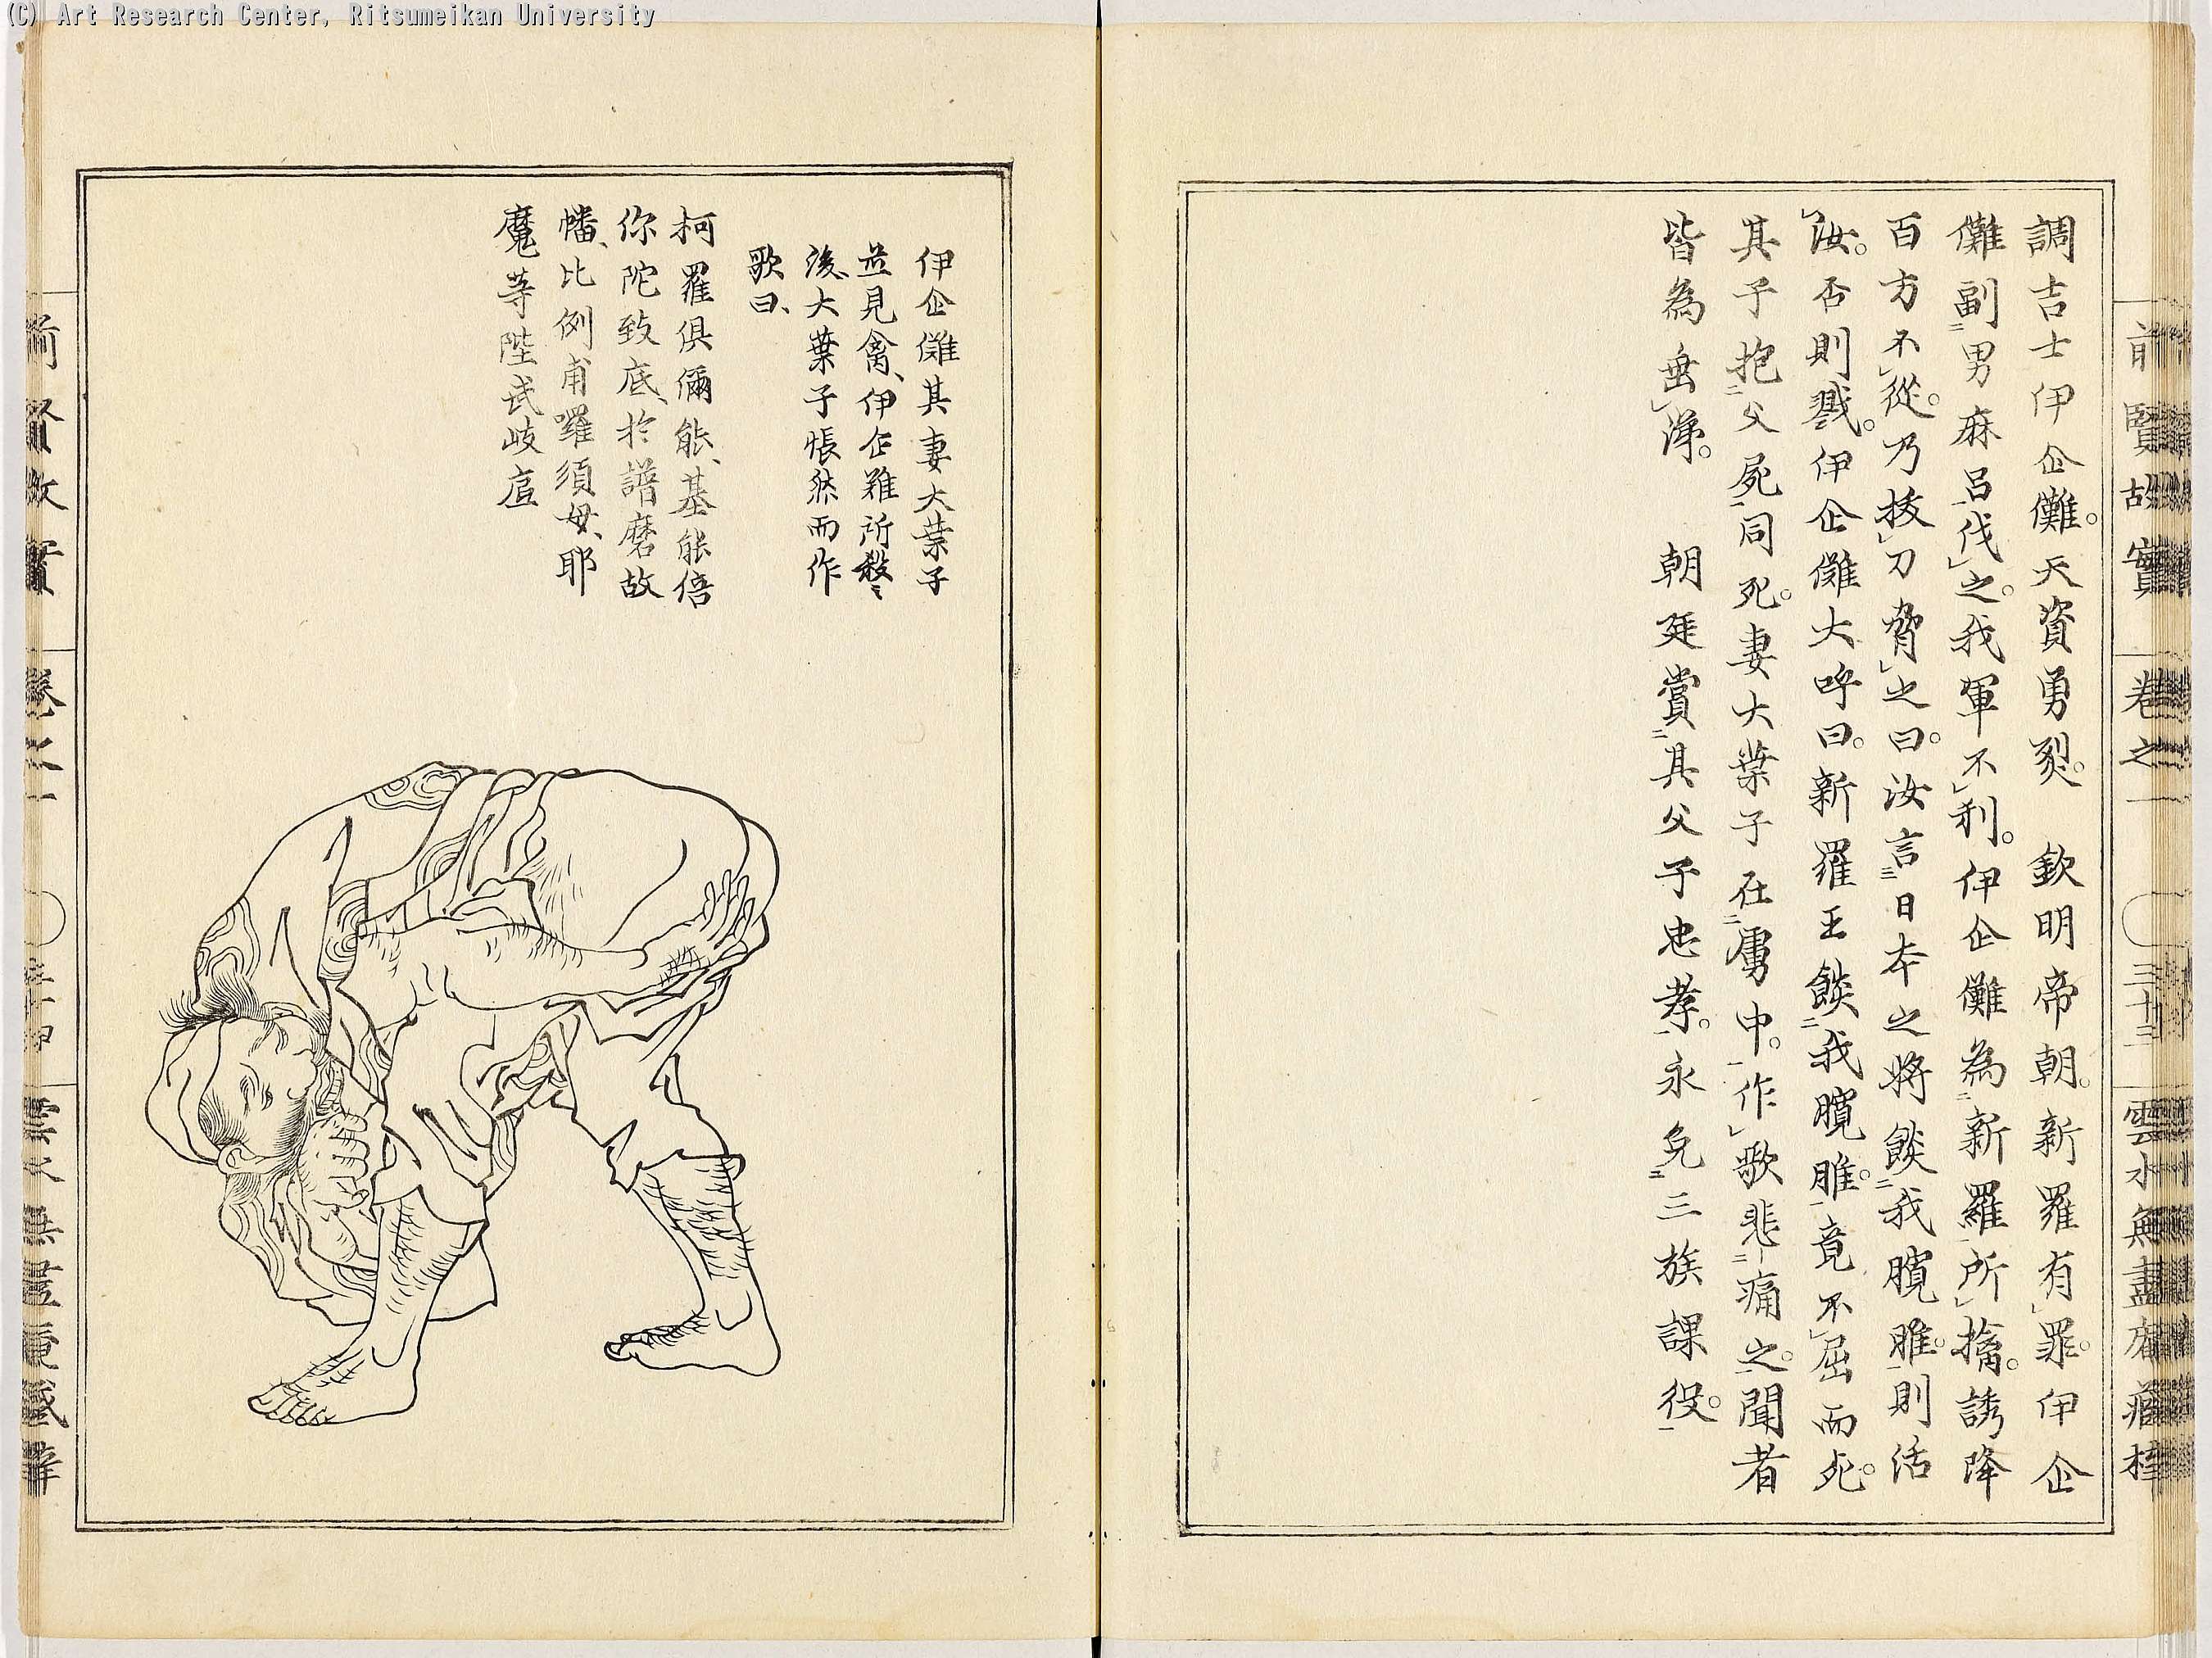 (C) Art Research Center, Ritsumeikan University
前賢故實 卷之一 三十三 雲水無盡庵藏梓
調吉士伊企儺。天資勇烈。 欽明帝朝。新羅有罪。伊企
儺副男麻呂伐之。我軍不利。伊企儺為新羅所擒。誘降
百方不從。乃拔刀脅之曰。汝言日本之將餤我臗脽。則活
汝。否則戮。伊企儺大呼曰。新羅王餤我臗脽。竟不屈而死。
其子抱父屍同死。妻大葉子在虜中。作歌悲痛之。聞者
皆為垂涕。 朝廷賞其父子忠孝。永免三族課役。
伊企儺其妻大葉子
並見禽、伊企難所殺〻
後、大葉子悵然而作
歌曰、
柯羅俱彌能、基能倍
你陀致底、於譜磨故
幡、比例甫囉須母、耶
魔等陛武岐底
前賢故實 卷之一